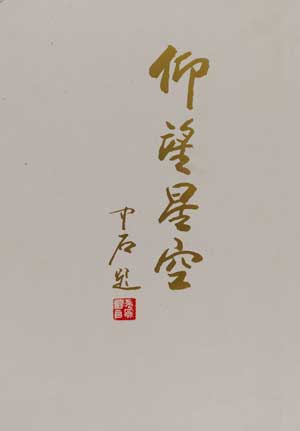 仰望星空
中石题